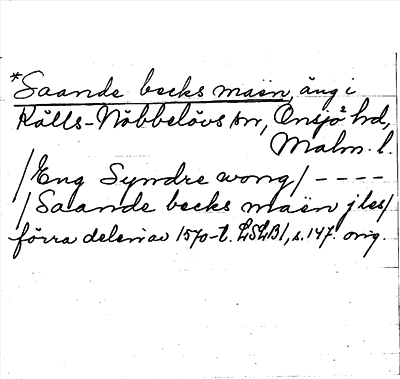 *Saande becks maën, äng i
Källs-Nöbbelövs sn, Onsjö hd,
Malm. l.
/Eng Syndre wong/ ----
/Saande becks maën jles/
förra delen av 1570-t. LSLB1, s. 147. orig.